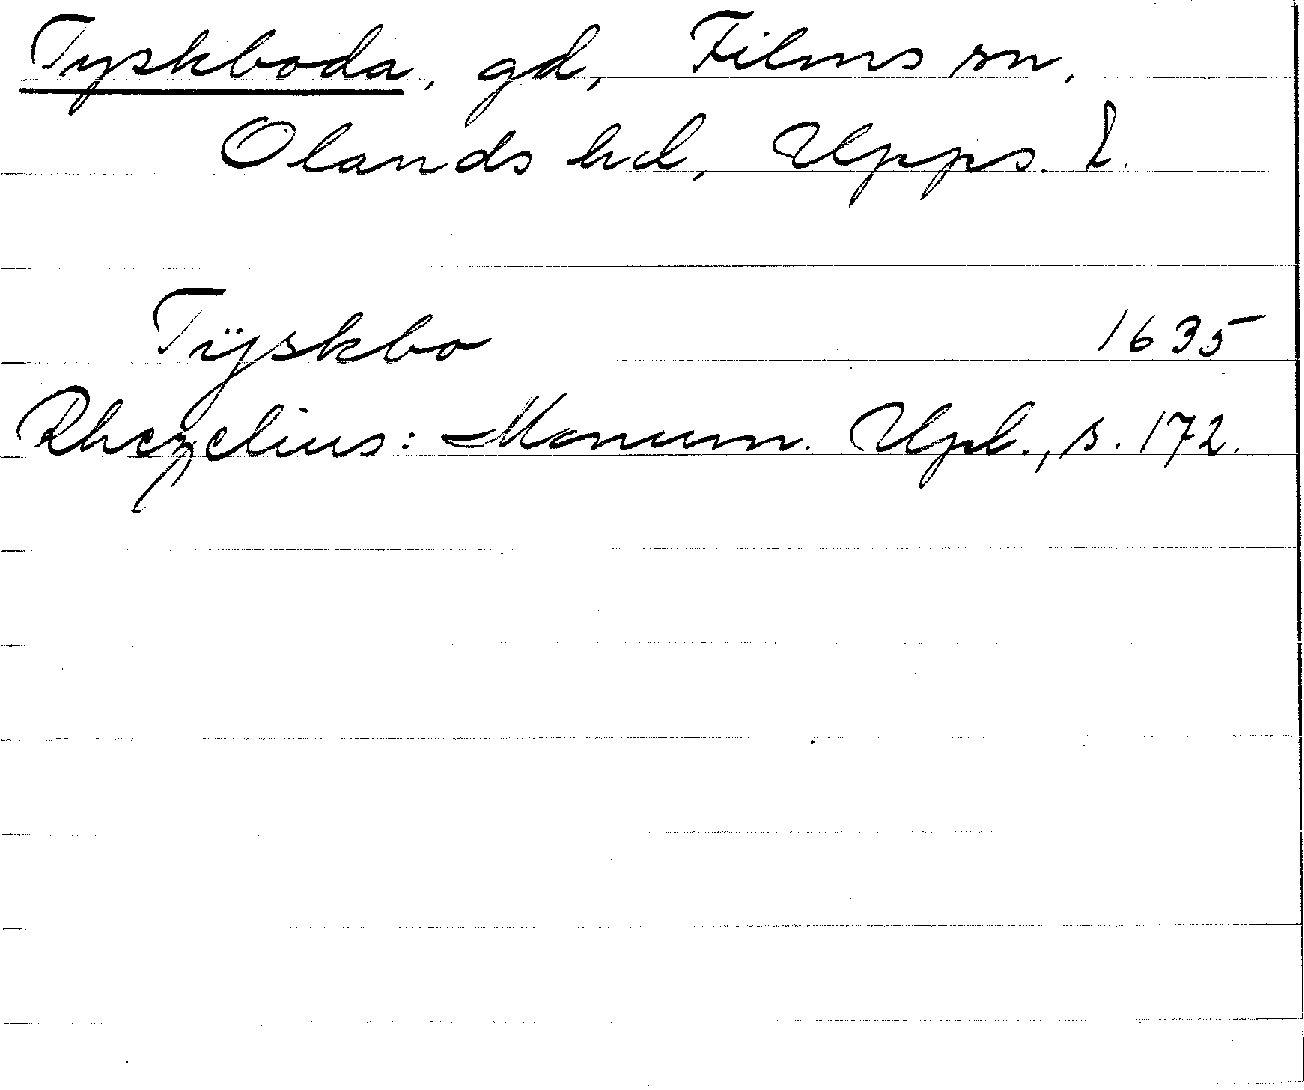 Tyskboda, gd, Films sn,
Olands hd, Upps. l.
Tÿskbo 1635
Rhezelius: Monum. Upl., s. 172.